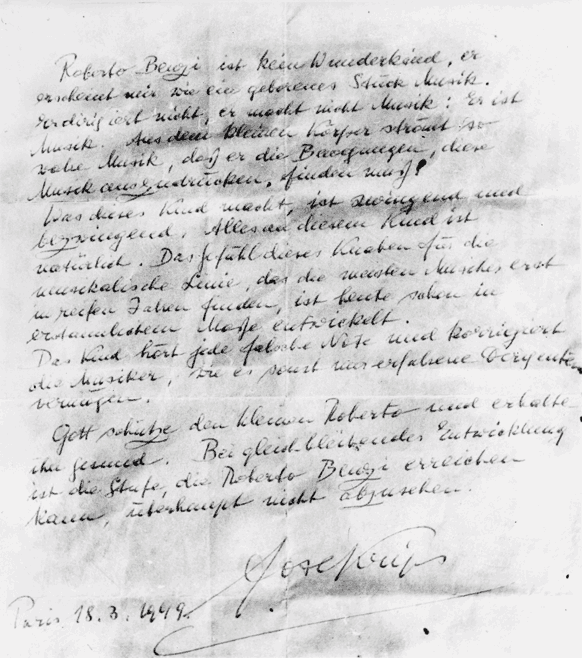 Roberto Benzi ist kein Wunderkind, er
erscheint mir wie ein geborenes Stück Musik.
Er dirigiert nicht, er macht nicht Musik: Er ist
Musik. Aus dem kleinen Körper strömt so
wahre Musik, daß er die Bewegungen, diese
Musik auszudrücken, finden muß!
Was dieses Kind macht, ist zwingend und
bezwingend. Alles an diesem Kind ist
natürlich. Das Gefühl dieses Knaben für die
musikalische Linie, das die meisten Musiker erst
in reifen Jahren finden, ist heute schon in
erstaunlichem Maße entwickelt.
Das Kind hört jede falsche Note und korrigiert
die Musiker, wie es sonst nur erfahrene Dirigenten
vermögen.
Gott schütze den kleinen Roberto und erhalte
ihn gesund. Bei gleichbleibender Entwicklung
ist die Stufe, die Roberto Benzi erreichen
kann, überhaupt nicht abzusehen.
Josef Krips
Paris 18.3.1949.